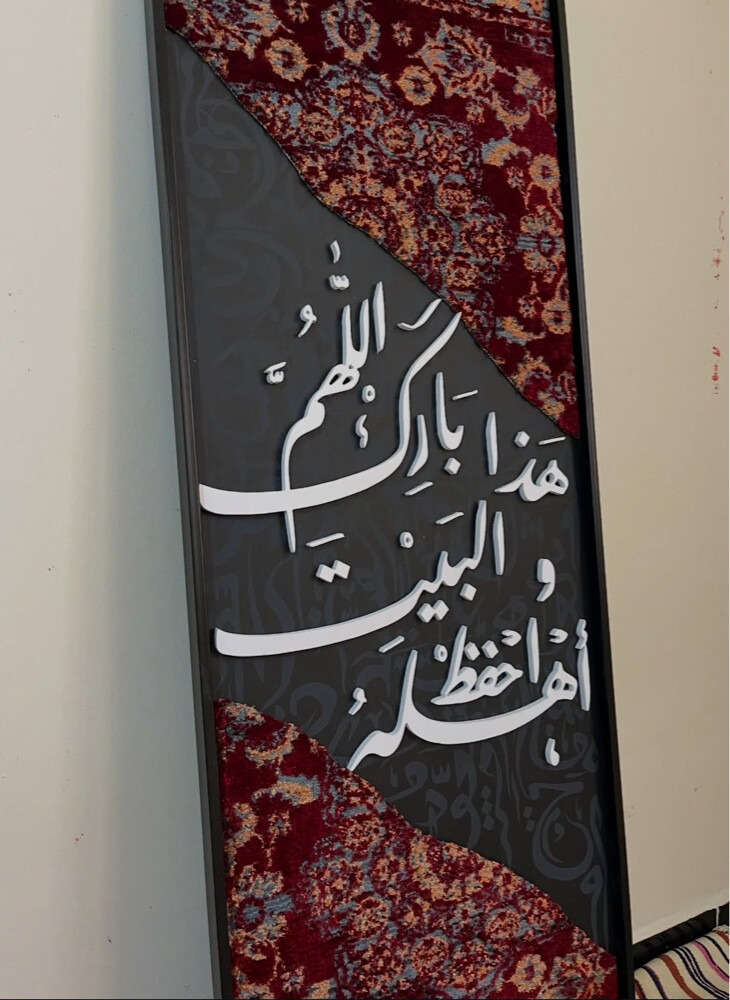 اللّٰهُمَّ بَارِكْ
هَذا
البَيْتَ و
احْفَظْ
أهْلَهُ